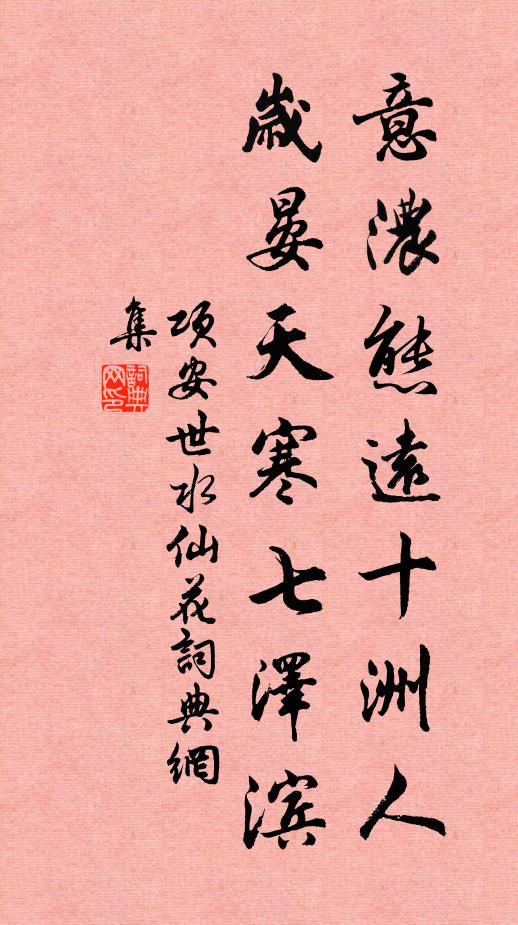 意濃態遠十洲人
歲晏天寒七澤滨
项安世水仙花詞典網
集
詞典
网印